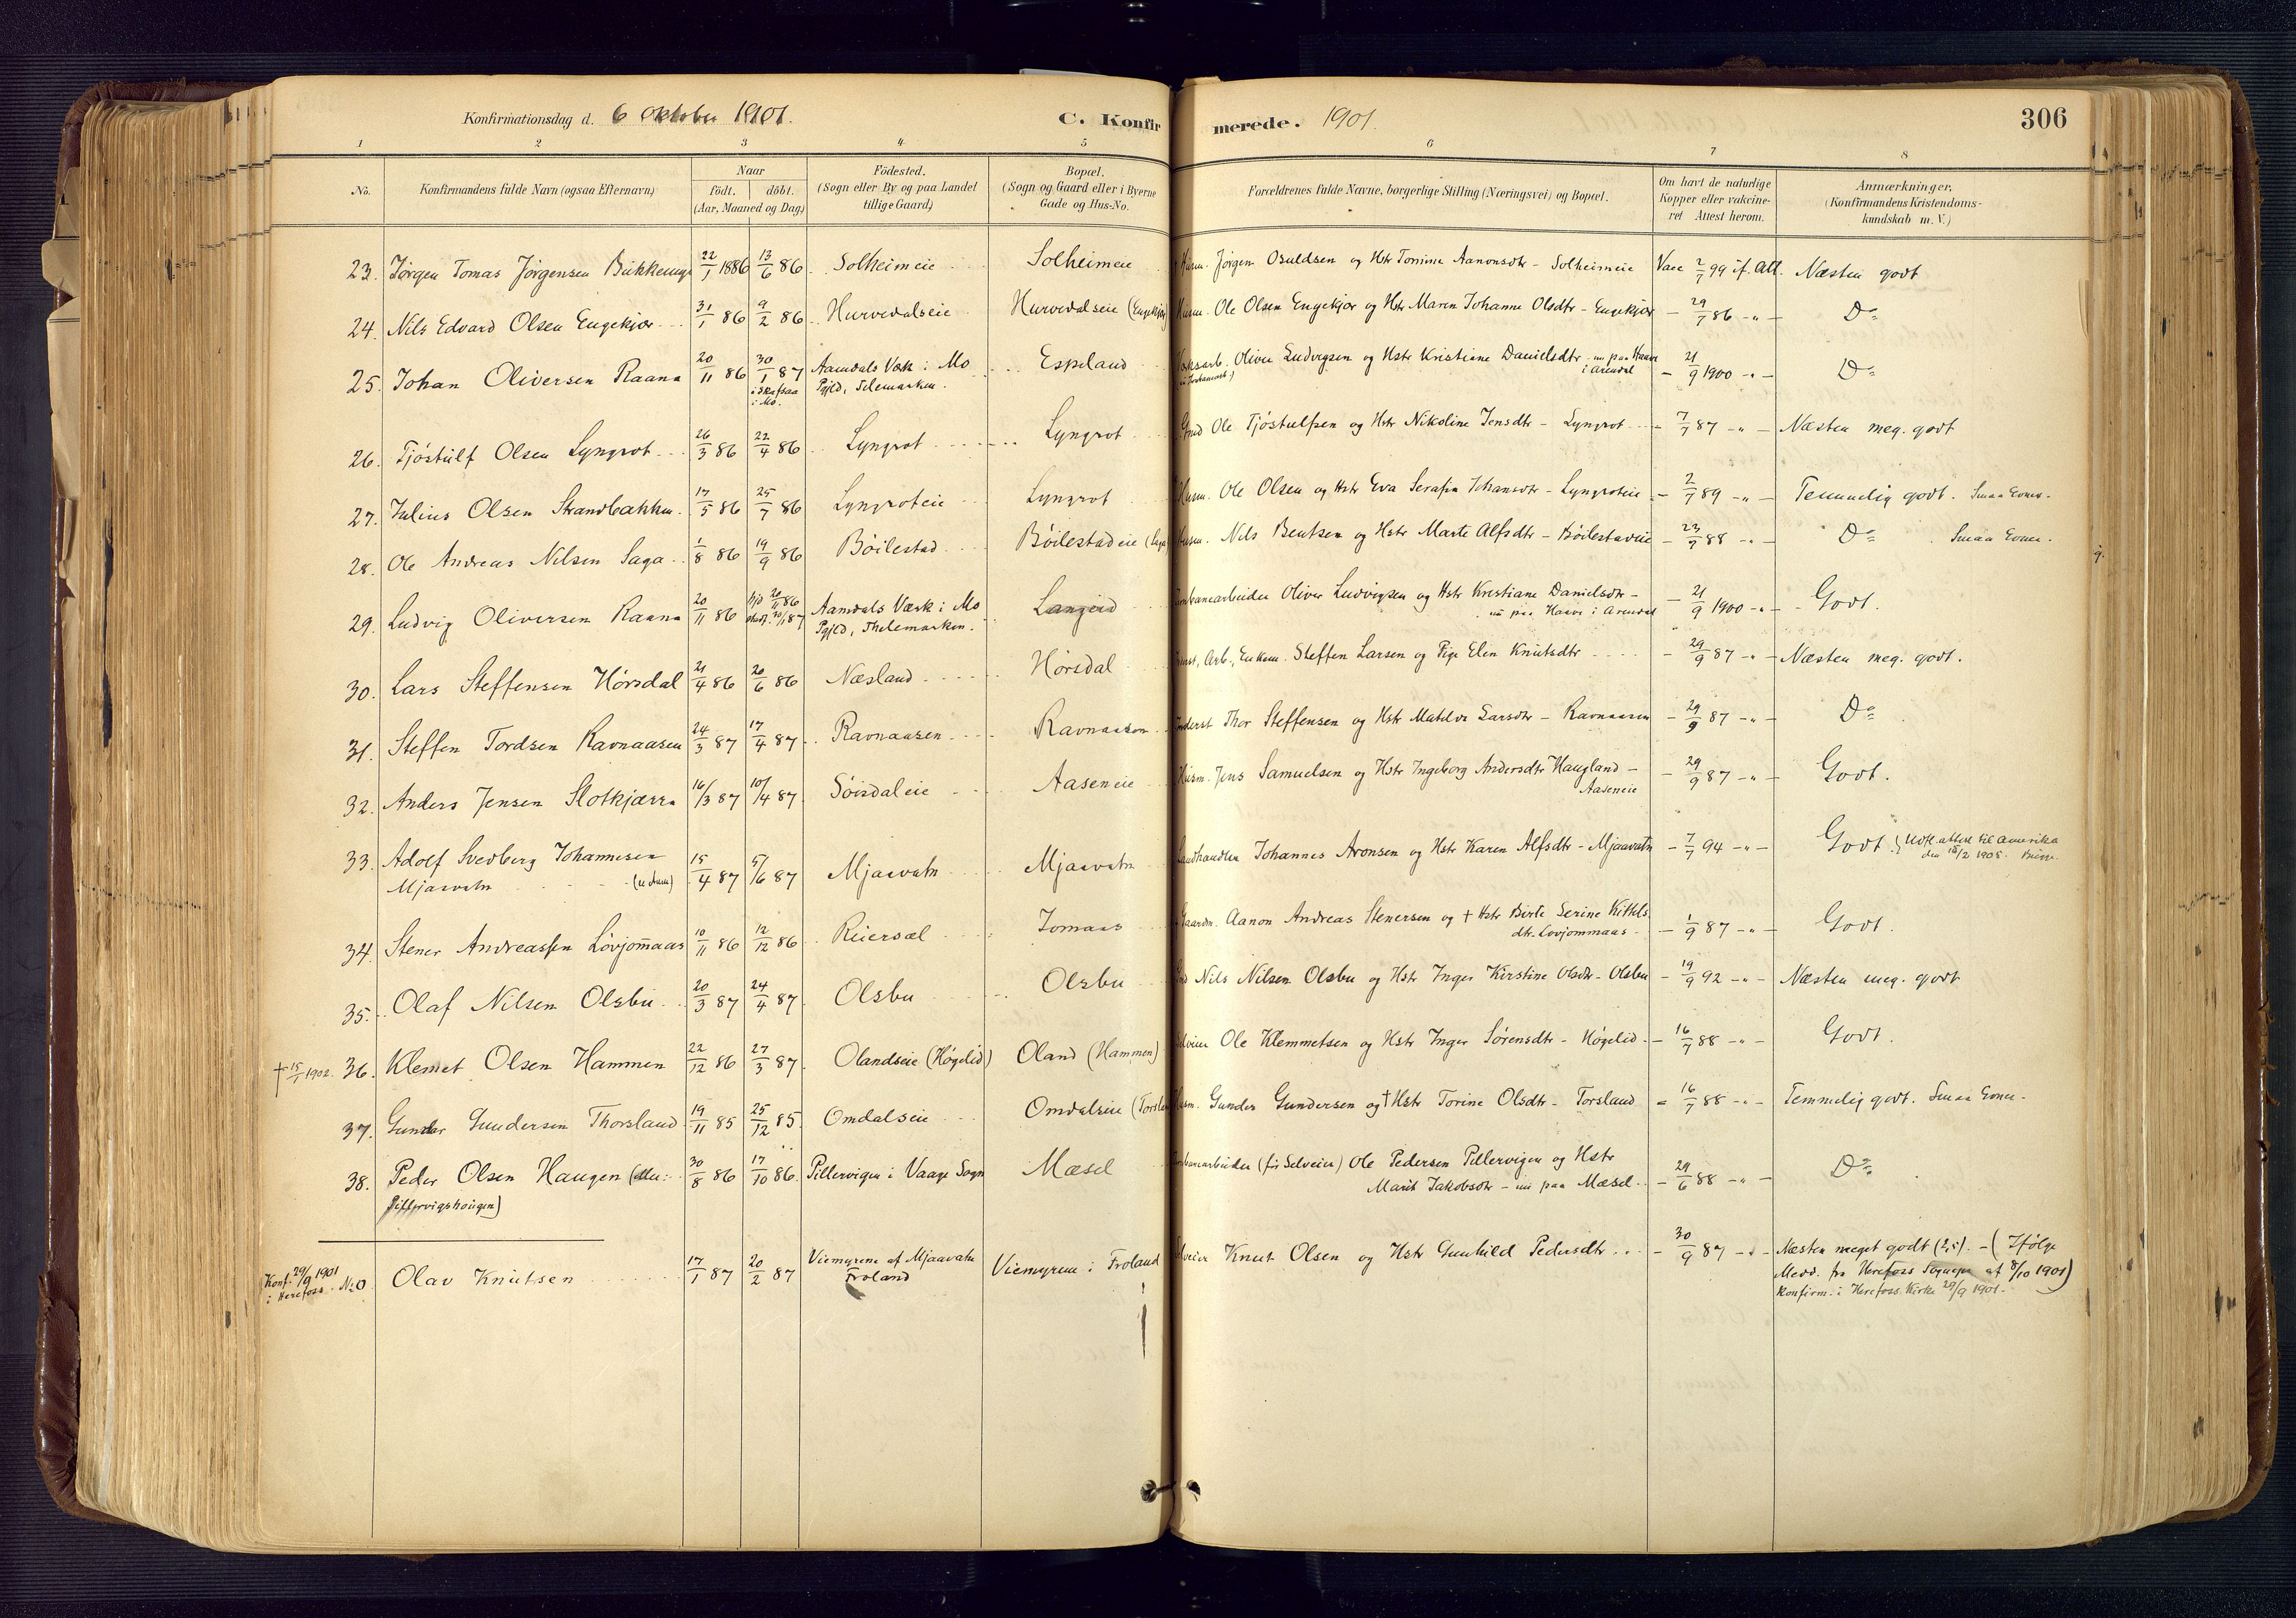 Konfirmationsdag d. 6 Oktober 1901. C. Konfirmerede. 1901. 306
1 2 3 4 5 6 7 8
No. Konfirmandens fulde Navn (ogsaa Efternavn) Naar födt. döbt. (Aar, Maaned og Dag) Födested. (Sogn eller By og paa Landet tillige Gaard) Bopæl. (Sogn og Gaard eller i Byerne Gade og Hus-No. Forældrenes fulde Navne, borgerlige Stilling (Næringsvei) og Bopæl. Om havt de naturlige Kopper eller vakcineret Attest herom. Anmærkninger. (Konfirmandens Kristendomskundskab m. V.)
23. Jörgen Tomas Jörgensen 22/1 1886 13/6 86 Solheimeie Solheimeie Husm. Jörgen Osuldsen og Hstr Tomine Aanonsdtr - Solheimeie Vacc 2/7 99 if. Att. Næsten godt
24. Nils Edvard Olsen Engekjær 31/1 86 9/2 86 Hurvedalseie Hurvedalseie (Engekjær) Husm. Ole Olsen Engekjær og Hstr Maren Johanne Olsdtr - Engekjær - 29/7 86 -"- Do
25. Johan Oliversen Raana 20/11 86 30/1 87 i Skafsaa i Mo. Aamdals Værk i Mo Pgjld, Telemarken. Espeland Oliver Ludvigsen og Hstr Kristiane Danielsdtr - nu paa Haave i Arendal - 21/9 1900 -"- Do
26. Tjöstulf Olsen Lyngrot 26/3 86 22/4 86 Lyngrot Lyngrot Gmd Ole Tjöstulfsen og Hstr Nikoline Jensdtr - Lyngrot - 7/7 87 -"- Næsten meg. godt
27. Julius Olsen Strandbakken 17/5 86 25/7 86 Lyngroteie Lyngrot Husm. Ole Olsen og Hstr Eva Serafia Johansdtr - Lyngroteie - 2/7 89 -"- Temmelig godt. Smaa Evner.
28. Ole Andreas Nilsen Saga 1/8 86 19/9 86 Böilestad Böilestadeie (Saga) Husm. Nils Bentsen og Hstr Marte Alfsdtr - Böilestadeie - 23/7 88 -"- Do Smaa Evner.
29. Ludvig Oliversen Raana 20/11 86 hjd 20/11 86 30/1 87 Aamdals Værk i Mo Pgjld, Thelemarken. Langeid Oliver Ludvigsen og Hstr Kristiane Danielsdtr - nu paa Haave i Arendal - 21/9 1900 -"- Godt.
30. Lars Steffensen Hörsdal 21/4 86 20/6 86 Næsland Hörsdal Arb., Enkem. Steffen Larsen og Pige Elen Knutsdtr - 29/9 87 -"- Næsten meg. godt.
31. Steffen Tordsen Ravnaasen 24/3 87 17/4 87 Ravnaasen Ravnaasen Inderst Thor Steffensen og Hstr Matilde Larsdtr - Ravnaasen - 29/9 87 -"- Do
32. Anders Jensen Slotkjærr 16/3 87 10/4 87 Söisdaleie Aaseneie Husm. Jens Samuelsen og Hstr Ingeborg Andersdtr Haugland - Aaseneie - 29/9 87 -"- Godt.
33. Adolf Svedberg Johannesen Mjaavatn 15/4 87 5/6 87 Mjaavatn Mjaavatn Landhandler Johannes Aronsen og Hstr Karen Alfsdtr - Mjaavatn - 7/7 94 -"- Godt. Udst. attest til Amerika
34. Stener Andreassen Lövjommaas 10/11 86 12/12 86 Reiersøl Jomaas Gaardm. Aanon Andreas Stenersen og † Hstr Birte Serine Kittelsdtr. Lovjommaas - 1/9 87 -"- Godt.
35. Olaf Nilsen Olsbu 20/3 87 24/4 87 Olsbu Olsbu Gmd Nils Nilsen Olsbu og Hstr Inger Kirstine Olsdtr - Olsbu - 19/9 92 -"- Næsten meg. godt
† 15/1 1902. 36. Klemet Olsen Hammen 22/12 86 27/3 87 Olandseie (Högelid) Oland (Hammen) Selveier Ole Klemmetsen og Hstr Inger Sörensdtr - Högelid - 16/7 88 -"- Godt.
37. Gunder Gundersen Thorsland 19/11 85 25/12 85 Omdalseie Omdalseie (Torsland) Husm. Gunder Gundersen og † Hstr Torine Olsdtr - Torsland - 16/7 88 -"- Temmelig godt. Smaa Evner.
38. Peder Olsen Haugen 30/8 86 17/10 86 Pillervigen i Vaage Sogn Mæsel (för Selveier) Ole Pedersen Pillervigen og Hstr Marit Jakobsdtr - nu paa Mæsel - 24/6 88 -"- Do
Pillervigshougen)
Konf. 29/9 1901 i Herefoss. No 0 Olav Knutsen 17/1 87 20/2 87 Viemyrene af Mjaavatn Froland Viemyrene i Froland Selveier Knut Olsen og Hstr Gunhild Pedersdtr - 30/9 87 -"- Næsten meget godt (2,5). - (Ifölge
Medd. fra Herefoss Sognepr. af 8/10 1901)
Konfirm. i Herefoss Kirke 29/9 1901.